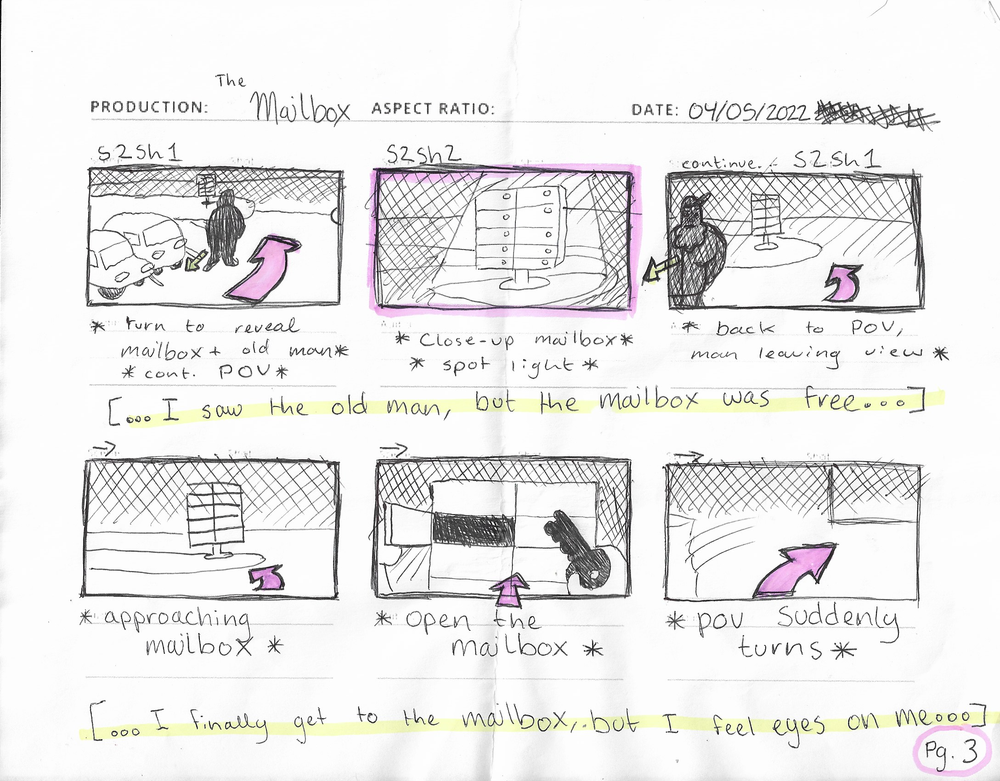 The
PRODUCTION: Mailbox ASPECT RATIO: DATE: 04/05/2022
S2Sh1
S2Sh2
continue... S2Sh1
* turn to reveal
mailbox + old man*
* cont. POV*
* Close-up mailbox*
* spot light *
* back to POV,
man leaving view *
[... I saw the old man, but the mailbox was free....]
→
→
→
* approaching
mailbox *
* open the
mailbox *
* pov Suddenly
turns *
[... I finally get to the mailbox,..but I feel eyes on me....]
Pg. 3